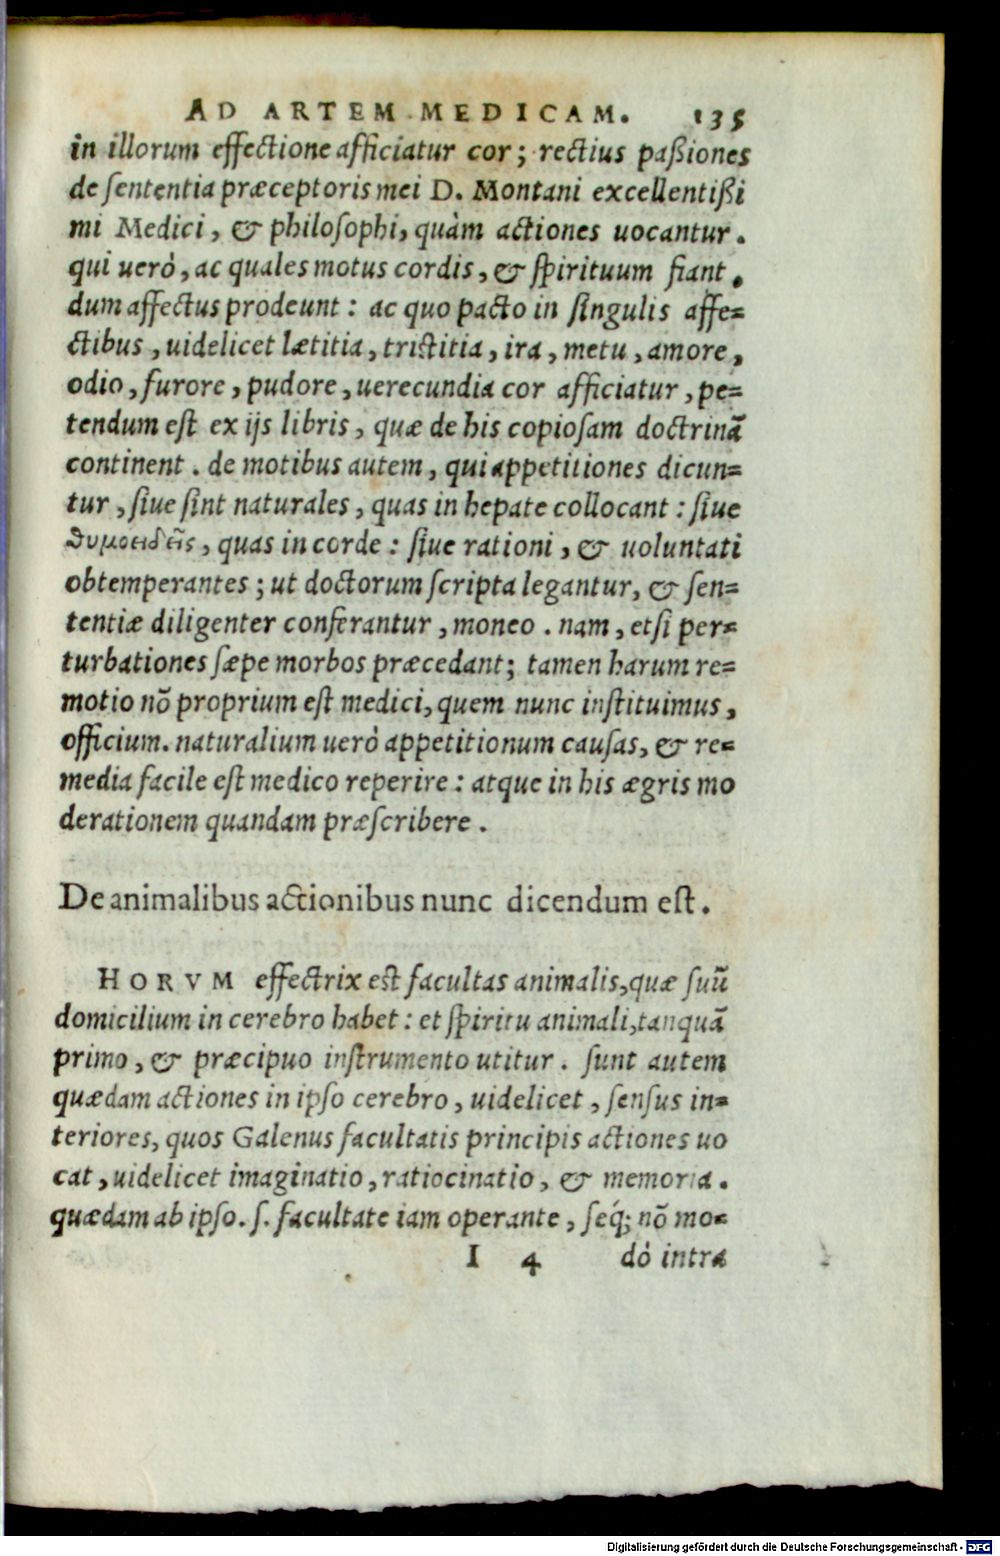 AD ARTEM MEDICAM. 135
in illorum effectione afficiatur cor; rectius paßiones
de ſententia præceptoris mei D. Montani excellentißi
mi Medici, & philoſophi, quàm actiones uocantur.
qui uerò, ac quales motus cordis, & ſpirituum fiant,
dum affectus prodeunt: ac quo pacto in ſingulis affe=
ctibus, uidelicet lætitia, triſtitia, ira, metu, amore,
odio, furore, pudore, uerecundia cor afficiatur, pe=
tendum eſt ex ijs libris, quæ de his copioſam doctrinā
continent. de motibus autem, qui appetitiones dicun=
tur, ſiue ſint naturales, quas in hepate collocant: ſiue
θυμοειδεῖς, quas in corde: ſiue rationi, & uoluntati
obtemperantes; ut doctorum ſcripta legantur, & ſen=
tentiæ diligenter conferantur, moneo. nam, etſi per=
turbationes ſæpe morbos præcedant; tamen harum re=
motio nō proprium eſt medici, quem nunc inſtituimus,
officium. naturalium uerò appetitionum cauſas, & re=
media facile eſt medico reperire: atque in his ægris mo
derationem quandam præſcribere.
De animalibus actionibus nunc dicendum eſt.
HORVM effectrix eſt facultas animalis, quæ ſuū
domicilium in cerebro habet: et ſpiritu animali, tanquā
primo, & præcipuo inſtrumento utitur. ſunt autem
quædam actiones in ipſo cerebro, uidelicet, ſenſus in=
teriores, quos Galenus facultatis principis actiones uo
cat, uidelicet imaginatio, ratiocinatio, & memoria.
quædam ab ipſo. ſ. facultate iam operante, ſeq́; nō mo=
I 4 dò intra
Digitalisierung gefördert durch die Deutsche Forschungsgemeinschaft - DFG